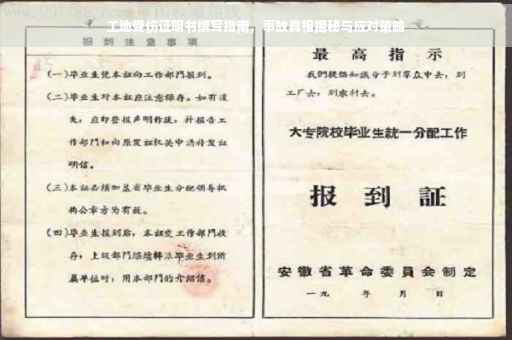 工地受伤证明书撰写指南，事故真相揭秘与应对策略
报到注意事项
(一)毕业生凭本证向工作部门报到。
(二)毕业生对本证应注意保存。如有遗
失，应即登报声明作废，并报告工
作部门和向原发证机关申请补发证
明信。
(三)本证必须加盖省毕业生分配领导机
构公章方为有效。
(四)毕业生报到后，本证交工作部门收
存；上级部门继续转派毕业生到所
属单位时，用本部门的介绍信。
最高指示
我们提倡知识分子到群众中去，到
工厂去，到农村去。
大专院校毕业生统一分配工作
报到证
安徽省革命委员会制定
一九 年 月 日